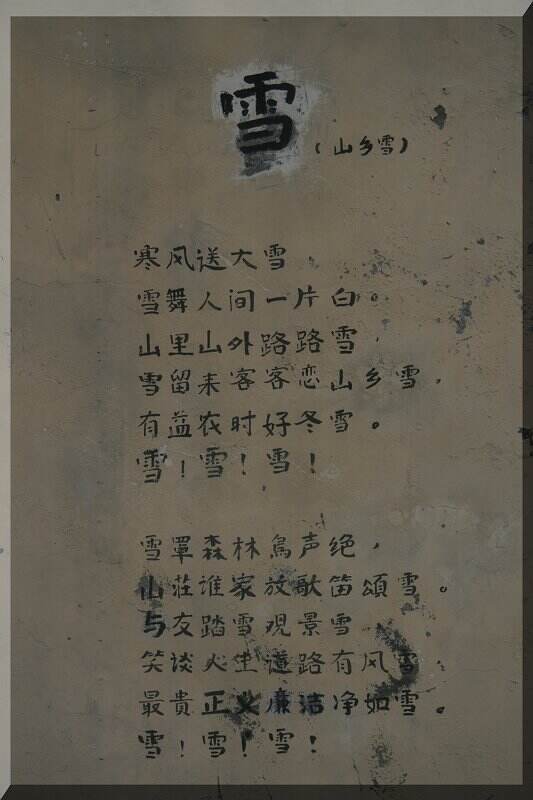 雪
(山乡雪)
寒风送大雪,
雪舞人间一片白。
山里山外路路雪,
雪留来客客恋山乡雪,
有益农时好冬雪。
雪!雪!雪!
雪罩森林鳥声绝,
山莊谁家放歌笛頌雪。
与友踏雪观景雪
笑谈人生道路有风雪
最贵正义廉洁净如雪。
雪!雪!雪!